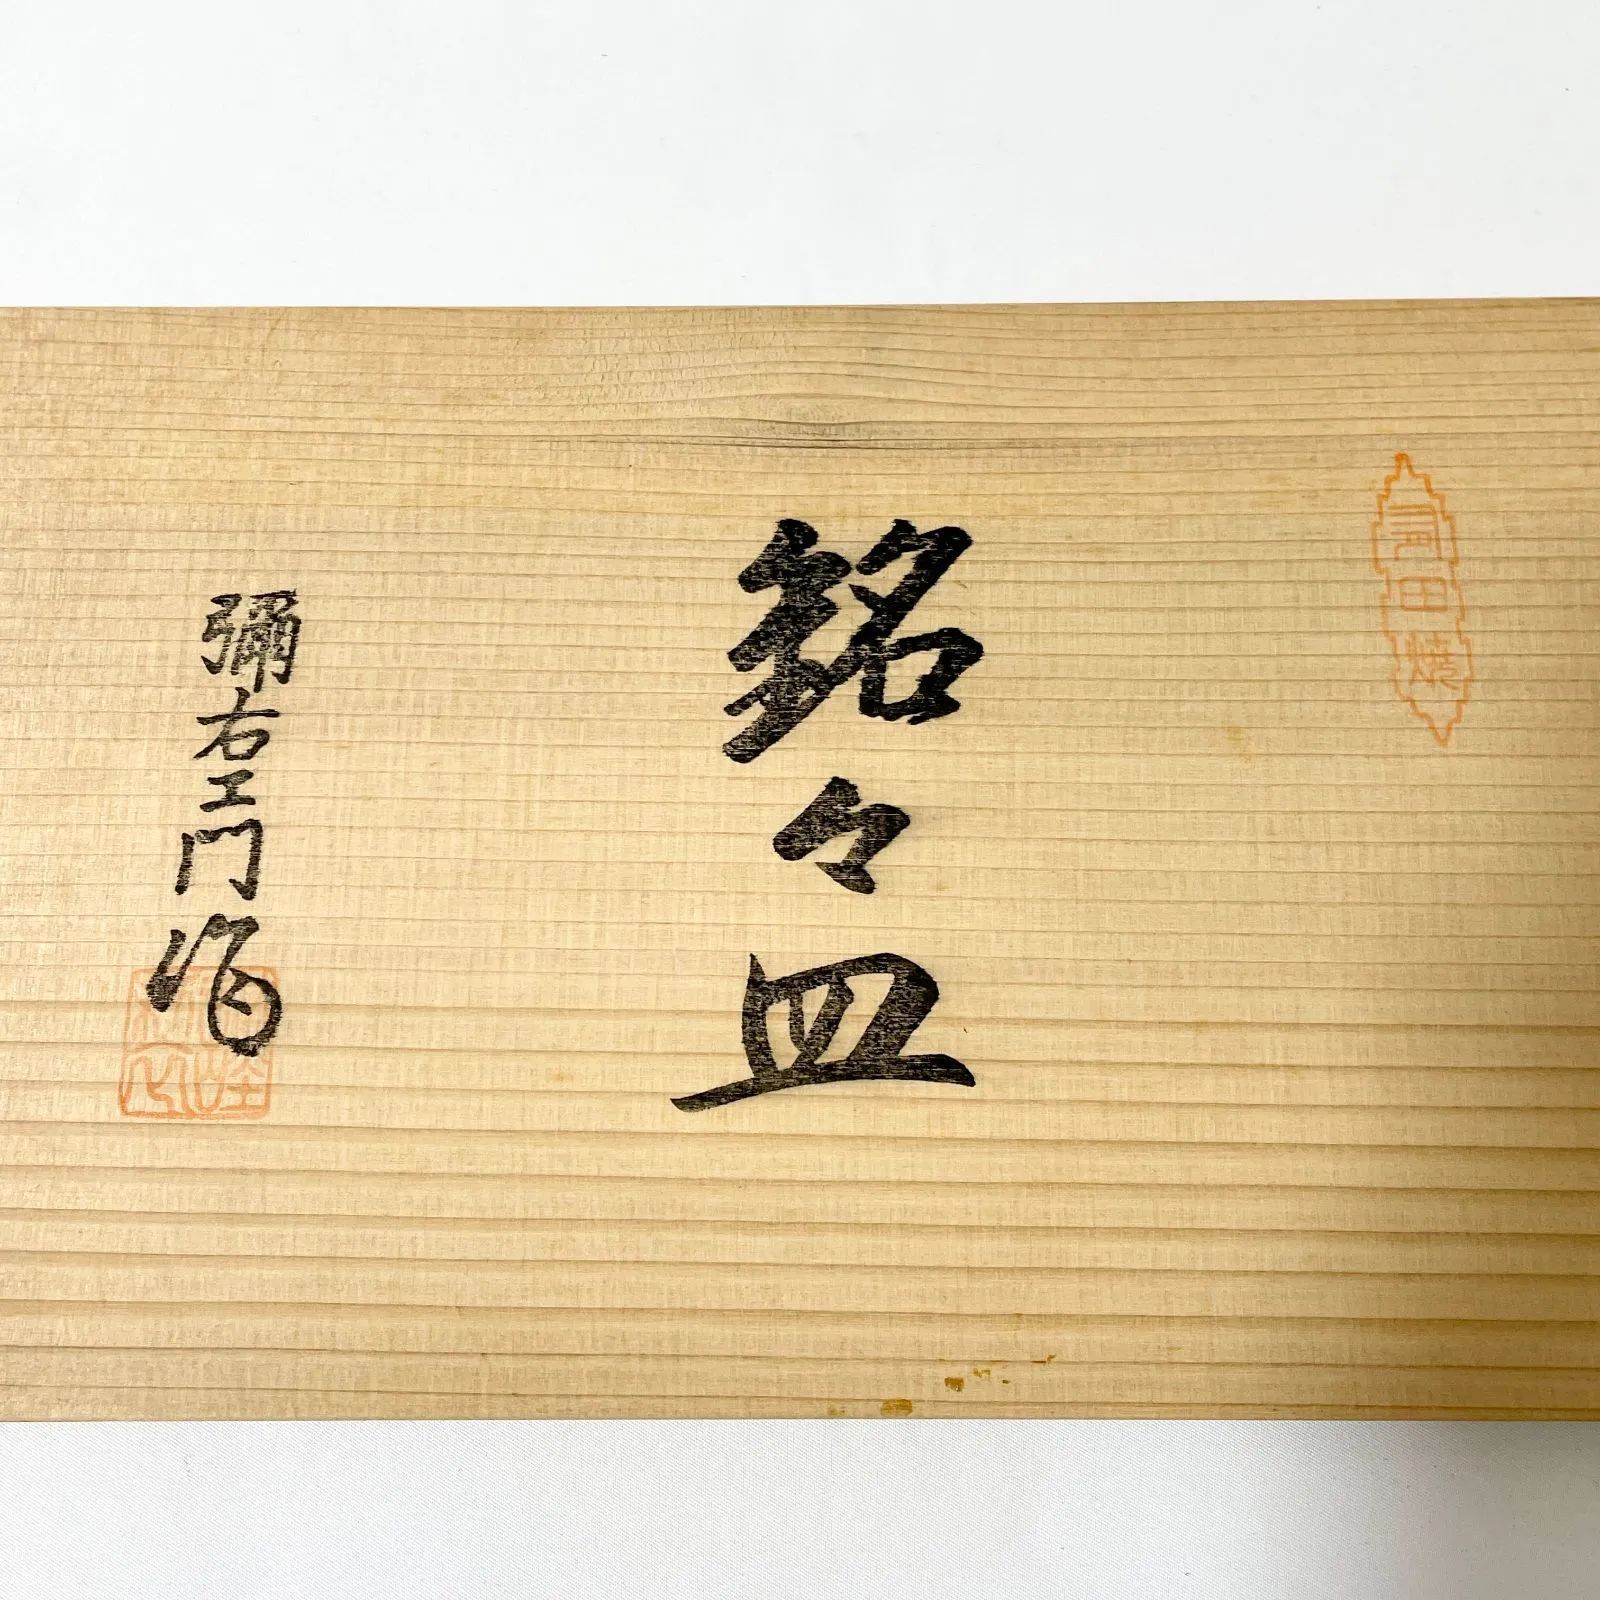 有田焼
銘々皿
彌右エ門作